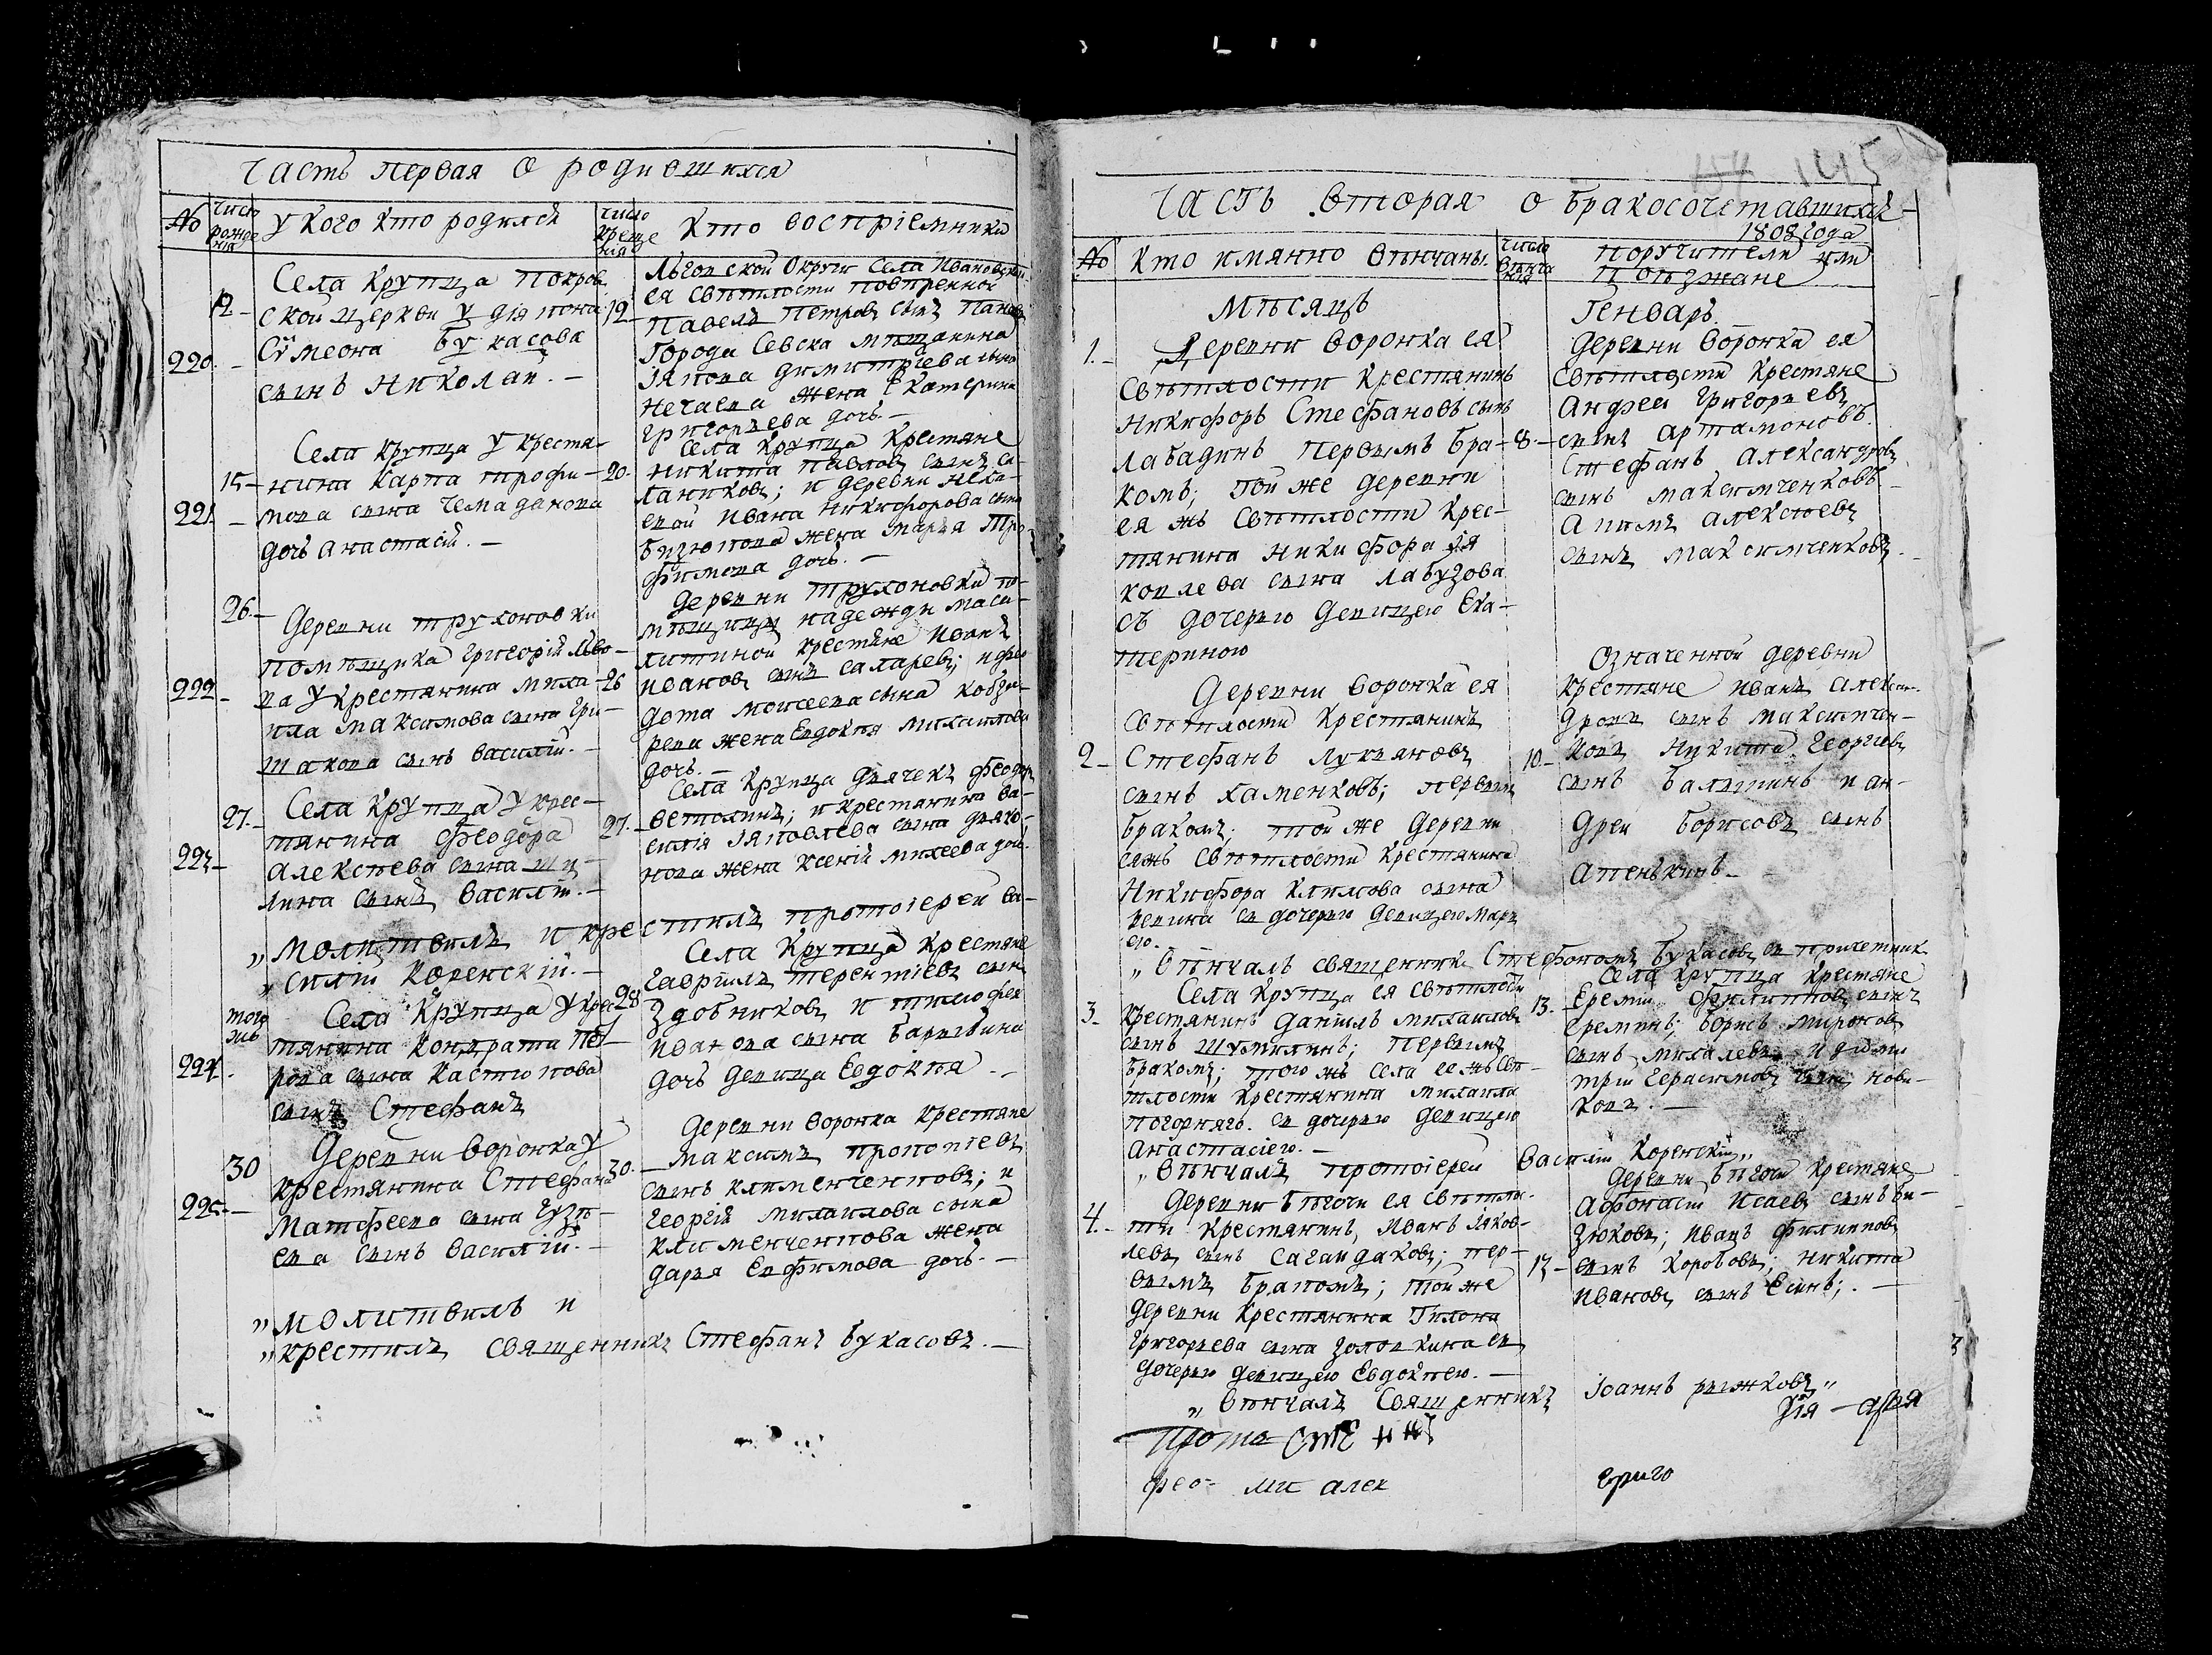 Часть первая о родившихся
№ число рождения у кого кто родился число крещения кто воспрiемники
Села Крупца покров
12 - ской церкви у дiякона
220. - Сѵмеона Букасова
сынъ Николай. -
12 - Льговской Округи Села Ивановскаго
ея свѣтлости повѣренной
Павелъ Петровъ сынъ
Города Севска мѣщанина
Iякова димитрiева сына
Нечаева жена Екатерина
григорьева дочь. -
Села Крупца у крестья-
15 - нина Карпа трофи-
221 - мова сына Чемаданова
дочь анастасiя. -
Села Крупца Крестяне
20. Никита Павловъ сынъ Са-
ланиковъ; и деревни
Ивана Никифорова сына
Бизюкова жена Марья Тро
фимова дочь. -
26. - Деревни трухоновки
помѣщика Григорiя Льво-
222 - ва у крестянина Миха-
ила Максимова сына Гри-
шакова сынъ Василiй. -
деревни Трухоновки по-
мѣщицы надежды
крестяне Иванъ
26 Ивановъ сынъ Саларевъ; и фео
дота Моисеева сына Кобзы-
рева жена Евдокiя Михаилова
дочь. -
27. - Села Крупца у крес-
тянина Феодора
223 - Алексѣева сына Ши-
лина сынъ Василiй. -
Села Крупца дьячекъ Феодоръ
27. - Ветолинъ; и крестянина Ва-
силiя Iяковлева сына дьяко-
нова жена Ксенiя Михеева дочь.
„ Молитвилъ и крестилъ протоiерей Ва-
„ силiй Коренскiй. -
того жъ Села Крупца у крес
тянина Кондрата Пет
224. рова сына Кастюкова
сынъ Стефанъ
Села Крупца Крестяне
гаврiилъ терентiевъ сынъ
28 Здобниковъ и тимофея
Иванова сына Барыбина
дочь девица Евдокiя. -
Деревни Воронка у
30 крестянина Стефана
225. - Матфеева сына Гузѣ-
ева сынъ Василiй. -
Деревни Воронка крестяне
30. - Максимъ Прокопiевъ
сынъ Клименченковъ; и
георгiя Михаилова сына
Клименченкова жена
Дарья Ефимова дочь. -
„ молитвилъ и
„ крестилъ священникъ Стефанъ Букасовъ. -
154 145
Часть вторая о бракосочетавшихся
1808 года
№ кто имянно вѣнчаны. число вѣнчания поручители или поѣзжане
Мѣсяцъ Генварь
1. - Деревни Воронка ея
Свѣтлости крестянинъ
Никифоръ Стефановъ сынъ
Лабадинъ первымъ бра-
комъ; той же деревни
ея жъ Свѣтлости крес-
тянина Никифора Iя
ковлева сына Лабузова
съ дочерью девицею Ека-
териною
Деревни Воронка ея
Свѣтлости Крестяне
Андрей григорьевъ
8. - сынъ Артамоновъ.
Стефанъ Александровъ
сынъ Максимченковъ
Акимъ Алексѣевъ
сынъ Максимченковъ. -
Деревни Воронка ея
свѣтлости крестянинъ
2 - Стефанъ Лукьяновъ
сынъ Хаменковъ; первымъ
бракомъ; той же деревни
ея жъ свѣтлости крестянина
Никифора Климова сына
Ревина съ дочерью девицею Марь
ею.
Означенной деревни
Крестяне Иванъ Алексан-
дровъ сынъ Максимчен-
10 - ковъ Никита Георгiевъ
сынъ Балыгинъ и Ан-
дрей Борисовъ сынъ
Апенькинъ -
„ Вѣнчалъ священникъ Стефаномъ Букасовъ съ причетник
Села Крупца ея свѣтлости
3. крестянинъ Данiилъ Михаиловъ
сынъ Шумилинъ; первымъ
бракомъ; того жъ села ея жъ свѣ-
тлости крестянина Михаила
Погорняго. съ дочерью девицею
Анастасiею. -
Села Крупца Крестяне
13. - Еремiй Филипповъ сынъ
Ереминъ; Борисъ Мироновъ
сынъ Михалевъ и дими
трiй Герасимовъ сынъ Нови-
ковъ. -
„ Вѣнчалъ протоiерей Василiй Коренскiй „
Деревни Бѣгочи ея свѣтлос-
4. - ти крестянинъ, Иванъ Iяков-
левъ сынъ Сагайдаковъ; пер-
вымъ бракомъ; той же
деревни крестянина Тихона
Григорьева сына Золоткина съ
дочерью девицею Евдокiею. -
Деревни Бѣгочи крестяне
Афонасiй Исаевъ сынъ Би-
зюковъ; Иванъ Филипповъ
17 - сынъ Коробовъ; Никита
Ивановъ сынъ Есинъ; . -
„ Вѣнчалъ Священникъ Iоаннъ Рыжковъ „
Прото Сте
фео - ми алек Григо